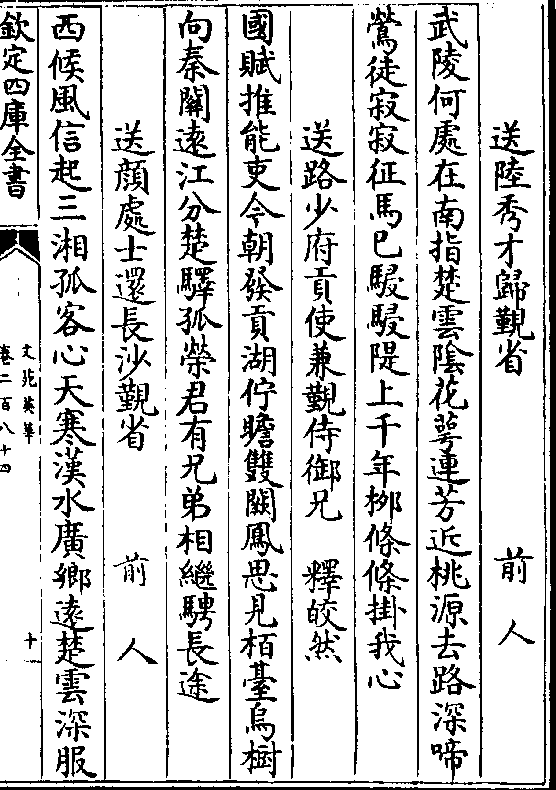 送陸秀才歸覲省 前人
武陵何處在南指楚雲陰花萼連芳近桃源去路深啼
鶯徒寂寂征馬已駸駸隄上千年栁條條掛我心
送路少府貢使兼覲侍御兄 釋皎然
國賦推能吏今朝發貢湖佇瞻雙闕鳳思見栢臺烏樹
向秦關逺江分楚驛孤榮君有兄弟相繼騁長途
送顔處士還長沙覲省 前人
西候風信起三湘孤客心天寒漢水廣鄉逺楚雲深服
欽定四庫全書
文苑英華
卷二百八十四
十一